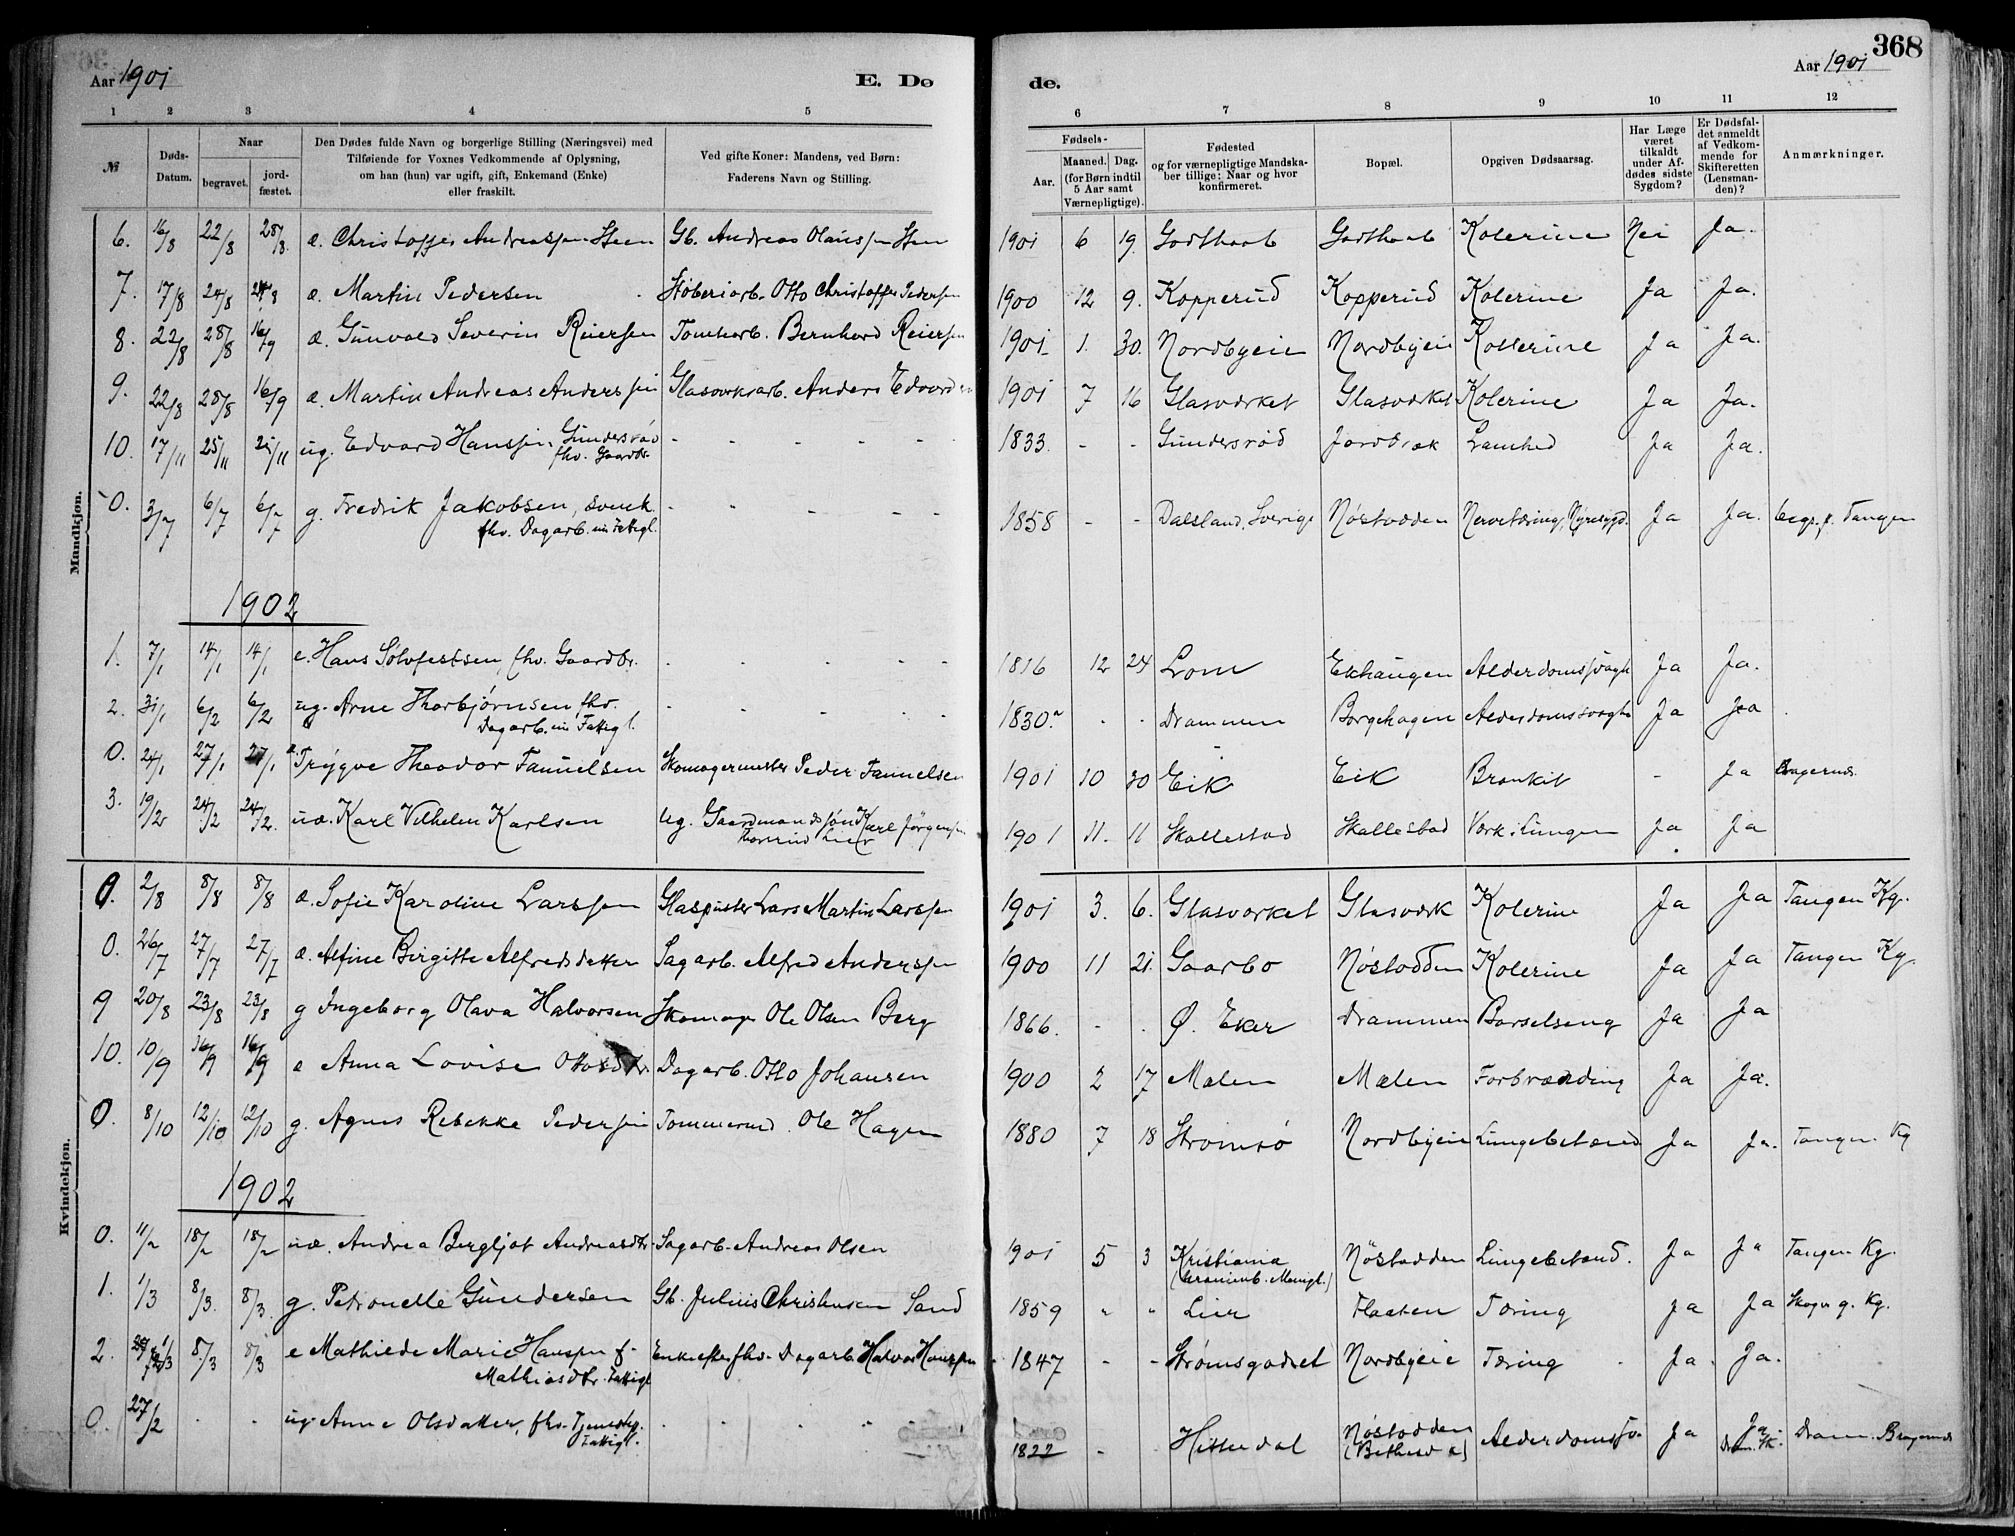 368
Aar 1901 E. Dø
de. Aar 1901
1 2 3 4 5
6 7 8 9 10 11 12
№ Døds-Datum. Naar begravet. jord-fæstet. Den Dødes fulde Navn og borgerlige Stilling (Næringsvei) med Tilføiende for Voxnes Vedkommende af Oplysning, om han (hun) var ugift, gift, Enkemand (Enke) eller fraskilt. Ved gifte Koner: Mandens, ved Børn: Faderens Navn og Stilling.
Fødsels- Aar. Maaned. Dag. (for Børn indtil 5 Aar samt Værnepligtige). Fødested og for værnepligtige Mandskaber tillige: Naar og hvor konfirmeret. Bopæl. Opgiven Dødsaarsag. Har Læge været tilkaldt under Afdødes sidste Sygdom? Er Dødsfaldet anmeldt af Vedkommende for Skifteretten (Lensmanden)? Anmærkninger.
Mandkjøn.
6. 16/8 22/8 28/8 æ. Christoffer Andreassen Steen Gb. Andreas Olaussen Steen 1901 6 19. Godthaab Godthaab Kolerine Nei Ja.
7. 17/8 24/8 24/8 æ. Martin Pedersen Støberiarb. Otto Christoffer Pedersen 1900 12 9. Kopperud Kopperud Kolerine Ja Ja.
8. 22/8 28/8 16/9 æ. Gunvald Severin Reiersen Tomtearb. Bernhard Reiersen 1901 1. 30. Nordbyeie Nordbyeie Kollerine Ja Ja.
9. 22/8 28/8 16/9 æ. Martin Andreas Anderssen Glasværksarb. Anders Edvardsen 1901 7 16 Glasværket Glasværket Kolerine Ja Ja.
10. 17/11 25/11 25/11 ug. Edvard Hanssen Gundersrød fhv. Gaardbr. - - - - - 1833. - - Gundersrød Jordbræk Lamhed Ja Ja.
0. 3/7 6/7 6/7 g. Fredrik Jakobsen, svensk fhv. Dagarb. nu Fattigl. - - - - - 1858 - - Dalsland, Sverige Nøstodden Nervetæring, Nyresygd. Ja Ja. begr. p. Tangen
1902
1. 7/1 14/1 14/1 e. Hans Sølvfestsen, fhv. Gaardbr. - - - - - 1816 12 24 Lom Ekhaugen Alderdomssvagh Ja Ja.
2. 31/1 6/2 6/2 ug. Arne Thorbjørnsen fhv. Dagarb. nu Fattigl. - - - - - 1830. - - Drammen Borgehagen Alderdomssvagh Ja Ja
0. 24/1 27/1 27/1 æ. Trygve Theodor Fanuelsen Skomagermester Peder Fannelsen 1901 10 20 Eik Eik Bronkit - Ja Bragernæs
3. 19/2 24/2 24/2. uæ. Karl Vilhelm Karlsen ug. Gaardmandssøn Karl Jørgensen Lier 1901 11. 11 Skallestad Skallestad Værk i Lungen Ja Ja
Kvindekjøn.
0. 2/8 8/8 8/8 æ. Sofie Karoline Larssen Glaspuster Lars Martin Larssen 1901 3. 6. Glasværket Glasværk Kolerine Ja Ja Tangen Kg.
0. 26/7 27/7 27/7 æ. Alfine Birgitte Alfredsdatter Sagarb. Alfred Anderssen 1900 11 21. Gaarbo Nøstodden Kolerine Ja Ja Tangen Kg.
9 20/8 23/8 23/8 g Ingeborg Olava Halvorsen Skomag. Ole Olsen Berg 1866. - - Ø. Eker Drammen Barselseng Ja Ja
10. 10/9 16/9 16/9 æ Anna Lovise Ottosdtr. Dagarb. Otto Johansen 1900 2 17 Mælen Mælen Forbrænding Ja Ja.
0. 8/10 12/10 12/10 g. Agnes Rebekke Pedersen Tømmermd. Ole Hagen 1880 7 18 Strømsø Nordbyeie Lungebetænd Ja Ja. Tangen. Kg
1902
0. 11/2 18/2 18/2 uæ. Andrea Bergljot Andreasdtr. Sagarb. Andreas Olsen 1901 5 3 Kristiania Nøstodden Lungebetænd. Ja Ja Tangen Kg.
1. 1/3 8/3. 8/3. g. Petronelle Gundersen Gb. Julius Christiansen Sand 1859 " " Lier Flaaten Tæring Ja Ja Skoger g. Kg.
2. 1/3 8/3 8/3 e Mathilde Marie Hanssen f. Mathiasdtr. Fattigl Enke efter fhv. Dagarb. Halvor Hanssen 1847 - - Strømsgodset Nordbyeie Tæring Ja Ja.
0. 27/2 - - ug. Anne Olsdatter, fhv. Tjenestep. Fattigl. - - - - - 1822 - Hitterdal Nøstodden (Bethesda) Alderdomssv. Ja Ja Dram. Sk. Dram. Bragernæs